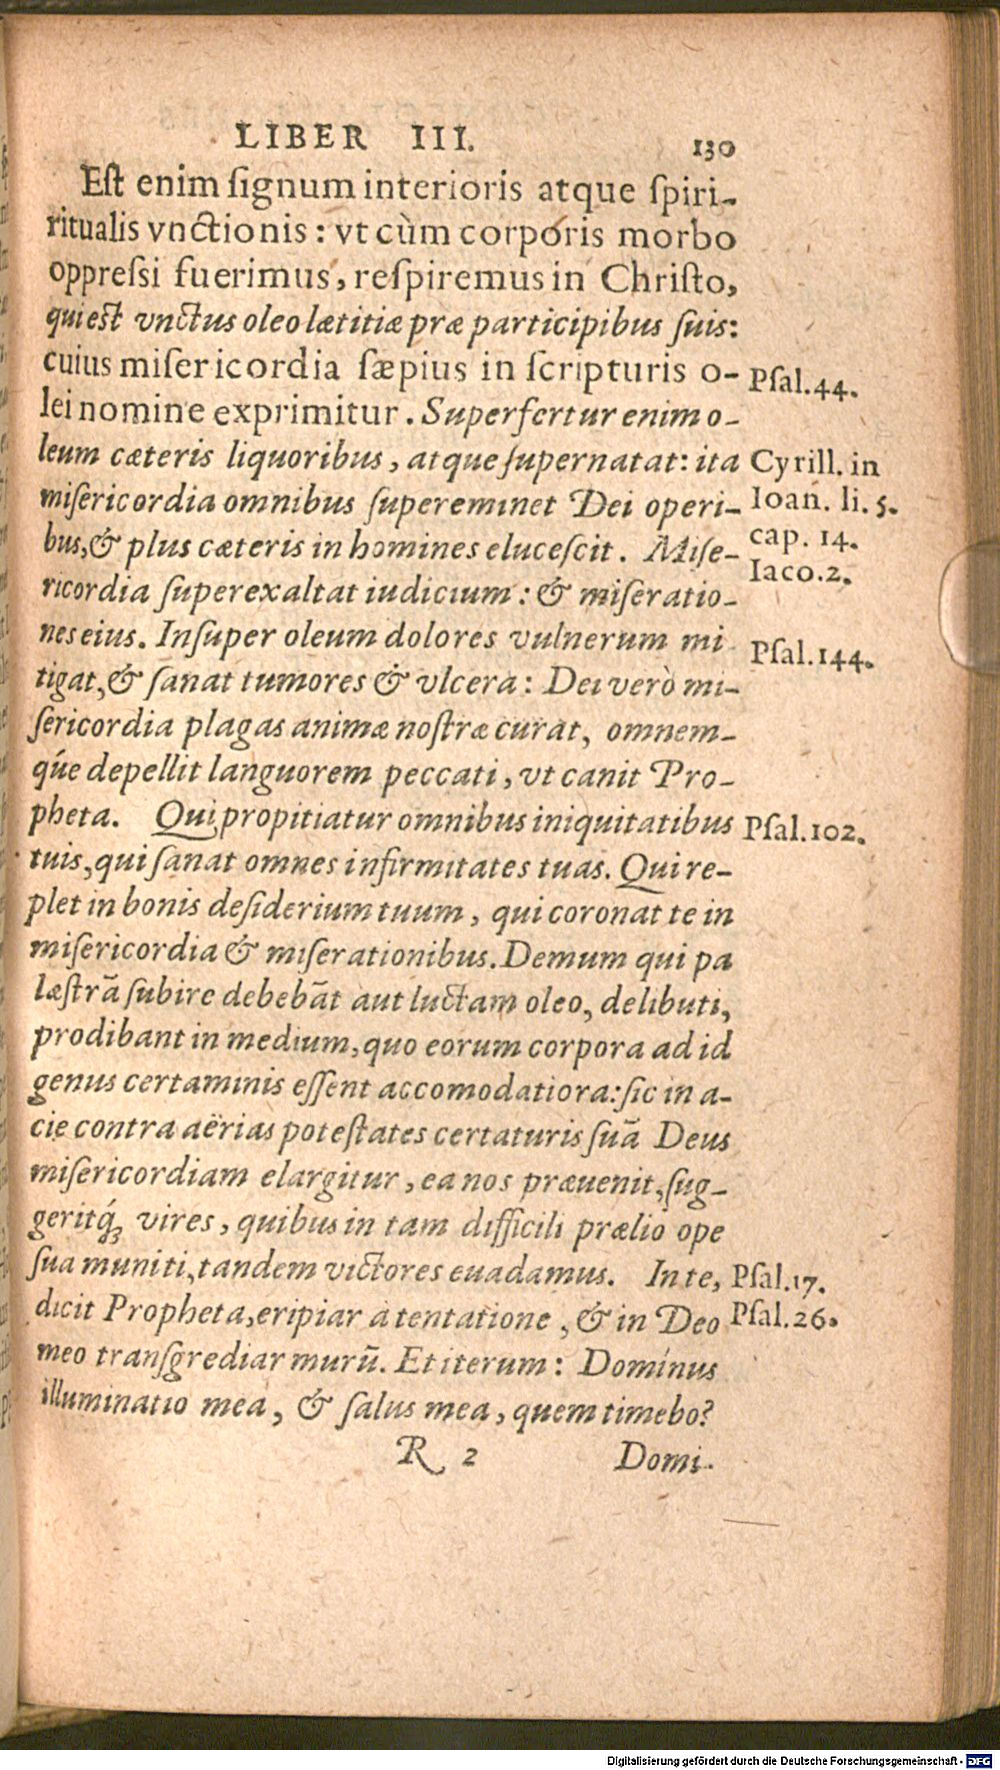 LIBER III. 130
Est enim signum interioris atque spiri-
ritualis vnctionis: vt cùm corporis morbo
oppressi fuerimus, respiremus in Christo,
qui est vnctus oleo lætitiæ præ participibus suis:
cuius misericordia sæpius in scripturis o- Psal.44.
lei nomine exprimitur. Superfertur enim o-
leum cæteris liquoribus, atque supernatat: ita Cyrill. in
misericordia omnibus supereminet Dei operi- Ioan. li. 5.
bus, & plus cæteris in homines elucescit. Mise- cap. 14.
ricordia superexaltat iudicium: & miseratio- Iaco.2.
nes eius. Insuper oleum dolores vulnerum mi Psal.144.
tigat, & sanat tumores & vlcera: Dei verò mi-
sericordia plagas animæ nostræ curat, omnem-
q́ue depellit languorem peccati, vt canit Pro-
pheta. Qui propitiatur omnibus iniquitatibus Psal.102.
tuis, qui sanat omnes infirmitates tuas. Qui re-
plet in bonis desiderium tuum, qui coronat te in
misericordia & miserationibus. Demum qui pa
læstrã subire debebãt aut luctam oleo, delibuti,
prodibant in medium, quo eorum corpora ad id
genus certaminis essent accomodatiora: sic in a-
cie contra aërias potestates certaturis suã Deus
misericordiam elargitur, ea nos præuenit, sug-
geritq́; vires, quibus in tam difficili prælio ope
sua muniti, tandem victores euadamus. In te, Psal.17.
dicit Propheta, eripiar à tentatione, & in Deo Psal.26.
meo transgrediar murũ. Et iterum: Dominus
illuminatio mea, & salus mea, quem timebo?
R 2 Domi.
Digitalisierung gefördert durch die Deutsche Forschungsgemeinschaft - DFG